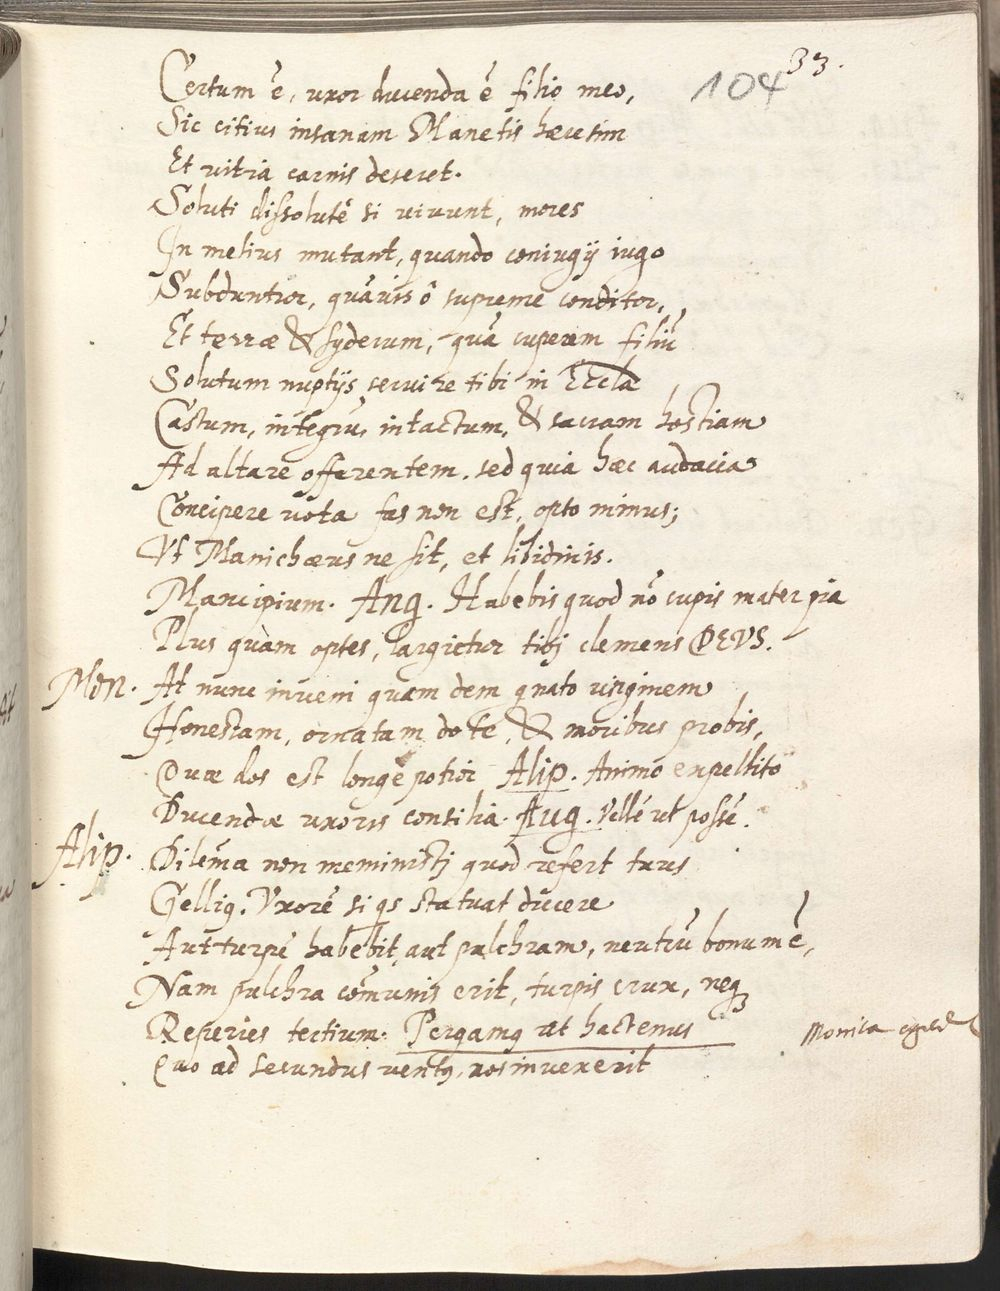 33.
104
Certum ē, uxor ducenda ē filio meo,
Sic citius insanam Manetis haeresim
Et vitia carnis deseret.
Soluti dissolutè si vivunt, mores
In melius mutant, quando coniugij iugo
Subduntur, quāuis ô supreme conditor,
Et terræ & syderum, quā cuperem filiū
Solutum nuptijs servire tibi in Eccla
Castum, integrū, intactum, & sacram hostiam
Ad altare offerentem. sed quia hæc audacia
Concipere vota fas non est, opto minus;
Ut Manichæus ne sit, et libidinis.
Mancipium. Ang. Habebis quod nō cupis mater pia
Plus quàm optes, largietur tibj clemens DEVS.
Mon. At nunc inveni quam dem gnato virginem
Honestam, ornatam dote, & moribus probis,
Quæ dos est longè potior Alip. Animo expellito
Ducendæ uxoris consilia. Aug. Vellē ut possē.
Alip. Dilēma non meministj quod refert tuus
Gellig. Uxorē si qs statuat ducere
Aut turpē habebit, aut pulchram, neutrū bonum ē,
Nam pulchra cōmunis erit, turpis crux, neqꝫ
Reperies tertium. Pergamq ut hactenus
Monica
Quo ad secundus ventq nos invexerit